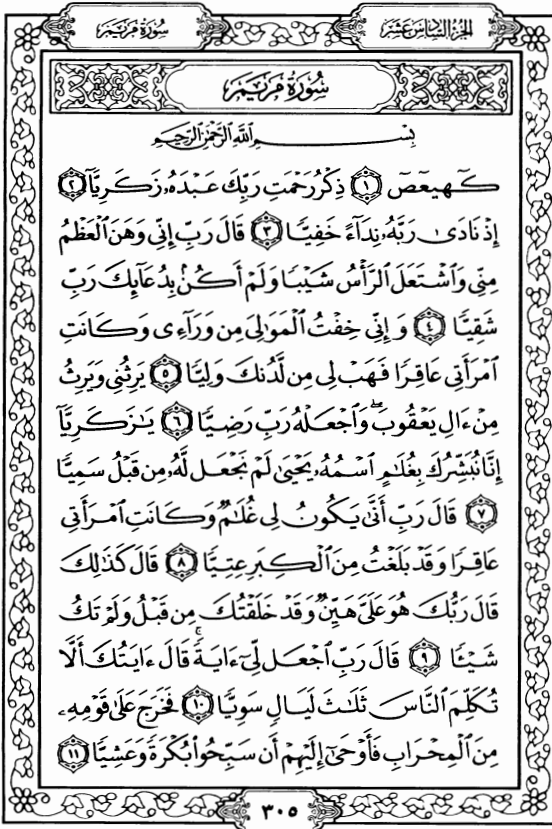 الجزء السادس عشر
سورة مريم
سورة مريم
بِسْمِ اللَّهِ الرَّحْمَٰنِ الرَّحِيمِ
كٓهيعٓصٓ ﴿١﴾ ذِكْرُ رَحْمَتِ رَبِّكَ عَبْدَهُۥ زَكَرِيَّآ ﴿٢﴾
إِذْ نَادَىٰ رَبَّهُۥ نِدَآءً خَفِيًّا ﴿٣﴾ قَالَ رَبِّ إِنِّى وَهَنَ ٱلْعَظْمُ
مِنِّى وَٱشْتَعَلَ ٱلرَّأْسُ شَيْبًا وَلَمْ أَكُنۢ بِدُعَآئِكَ رَبِّ
شَقِيًّا ﴿٤﴾ وَإِنِّى خِفْتُ ٱلْمَوَٰلِىَ مِن وَرَآءِى وَكَانَتِ
ٱمْرَأَتِى عَاقِرًا فَهَبْ لِى مِن لَّدُنكَ وَلِيًّا ﴿٥﴾ يَرِثُنِى وَيَرِثُ
مِنْ ءَالِ يَعْقُوبَ ۖ وَٱجْعَلْهُ رَبِّ رَضِيًّا ﴿٦﴾ يَٰزَكَرِيَّآ
إِنَّا نُبَشِّرُكَ بِغُلَٰمٍ ٱسْمُهُۥ يَحْيَىٰ لَمْ نَجْعَل لَّهُۥ مِن قَبْلُ سَمِيًّا
﴿٧﴾ قَالَ رَبِّ أَنَّىٰ يَكُونُ لِى غُلَٰمٌ وَكَانَتِ ٱمْرَأَتِى
عَاقِرًا وَقَدْ بَلَغْتُ مِنَ ٱلْكِبَرِ عِتِيًّا ﴿٨﴾ قَالَ كَذَٰلِكَ
قَالَ رَبُّكَ هُوَ عَلَىَّ هَيِّنٌ وَقَدْ خَلَقْتُكَ مِن قَبْلُ وَلَمْ تَكُ
شَيْـًٔا ﴿٩﴾ قَالَ رَبِّ ٱجْعَل لِّىٓ ءَايَةً ۚ قَالَ ءَايَتُكَ أَلَّا
تُكَلِّمَ ٱلنَّاسَ ثَلَٰثَ لَيَالٍ سَوِيًّا ﴿١٠﴾ فَخَرَجَ عَلَىٰ قَوْمِهِۦ
مِنَ ٱلْمِحْرَابِ فَأَوْحَىٰٓ إِلَيْهِمْ أَن سَبِّحُوا۟ بُكْرَةً وَعَشِيًّا ﴿١١﴾
٣٠٥